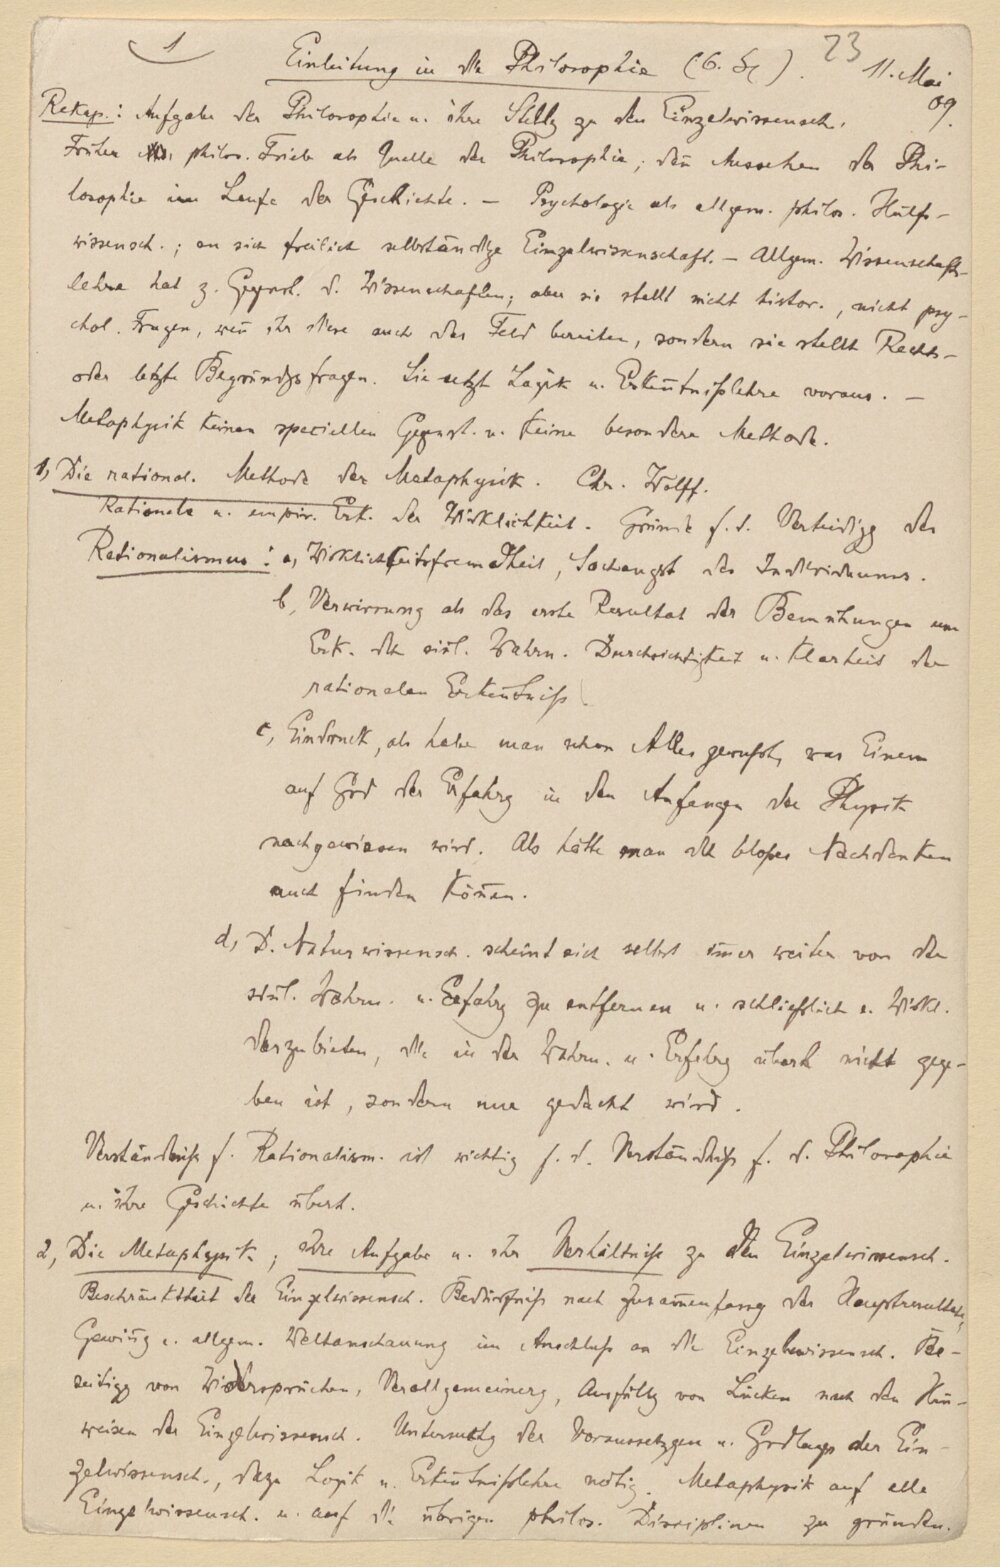 1
Einleitung in die Philosophie (6. St). 23 11. Mai
09.
Rekap.: Aufgabe der Philosophie u. ihre Stellg zu den Einzelwissensch.
Früher philos. Trieb als Quelle der Philosophie; den̄ Aussehen der Phi-
losophie im Laufe der Geschichte. — Psychologie als allgem. philos. Hülfs-
wissensch.; an sich freilich selbständige Einzelwissenschaft. — Allgem. Wissenschafts-
lehre hat z. Gegenst. d. Wissenschaften; aber sie stellt nicht histor., nicht psy-
chol. Fragen, wen̄ ihr diese auch das Feld bereiten, sondern sie stellt Rechts-
oder letzte Begründgsfragen. Sie setzt Logik u. Erken̄tnißlehre voraus. —
Metaphysik keinen speciellen Gegenst. u. keine besondere Methode.
1, Die rational. Methode der Metaphysik. Chr. Wolff.
Rationale u. empir. Erk. der Wirklichkeit. Gründe f. d. Verteidigg des
Rationalismus: a, Wirklichkeitsfremdheit, Sachangst des Individuums.
b, Verwirrung als das erste Resultat der Bemühungen um
Erk. der sin̄l. Wahrn. Durchsichtigkeit u. Klarheit der
rationalen Erken̄tniß
c, Eindruck, als habe man schon Alles gewußt, was Einem
auf Grd der Erfahrg in den Anfängen der Physik
nachgewiesen wird. Als hätte man es bloßes Nachdenken
auch finden kön̄en.
d, D. Naturwissensch. scheint sich selbst im̄er weiter von der
sin̄l. Wahrn. u. Erfahrg zu entfernen u. schließlich e. Wirkl.
darzubieten, die in der Wahrn. u. Erfahrg überh. nicht gege-
ben ist, sondern nur gedacht wird.
Verständniß f. Rationalism. ist wichtig f. d. Verständniß f. d. Philosophie
u. ihre Geschichte überh.
2, Die Metaphysik; ihre Aufgabe u. ihr Verhältniß zu den Einzelwissensch.
Beschränktheit der Einzelwissensch. Bedürfniß nach Zusam̄enfassg der Hauptresultate,
Gewin̄g e. allgem. Weltanschauung im Anschluß an die Einzelwissensch. Be-
seitigg von Widersprüchen, Verallgemeinerg, Ausfüllg von Lücken nach den Hin-
weisen der Einzelwissensch. Untersuchg der Voraussetzgen u. Grdlage der Ein-
zelwissensch., dazu Logik u. Erken̄tnißlehre nötig. Metaphysik auf alle
Einzelwissensch. u. auf die übrigen philos. Disciplinen zu gründen.